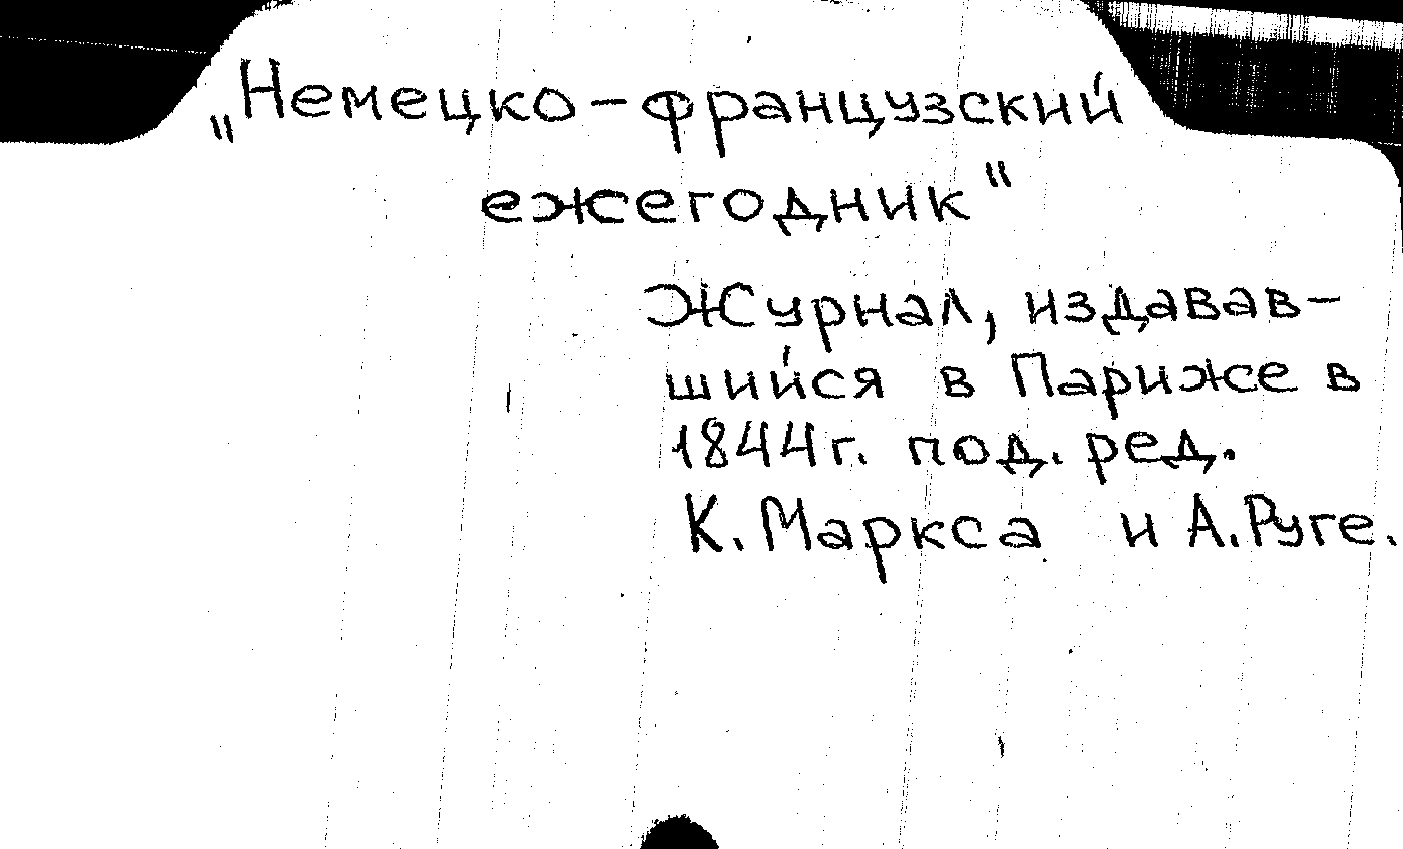 „Немецко-французский
ежегодник"
Журнал, издавав-
шийся в Париже в
1844г. под. ред.
К. Маркса и А. Руге.